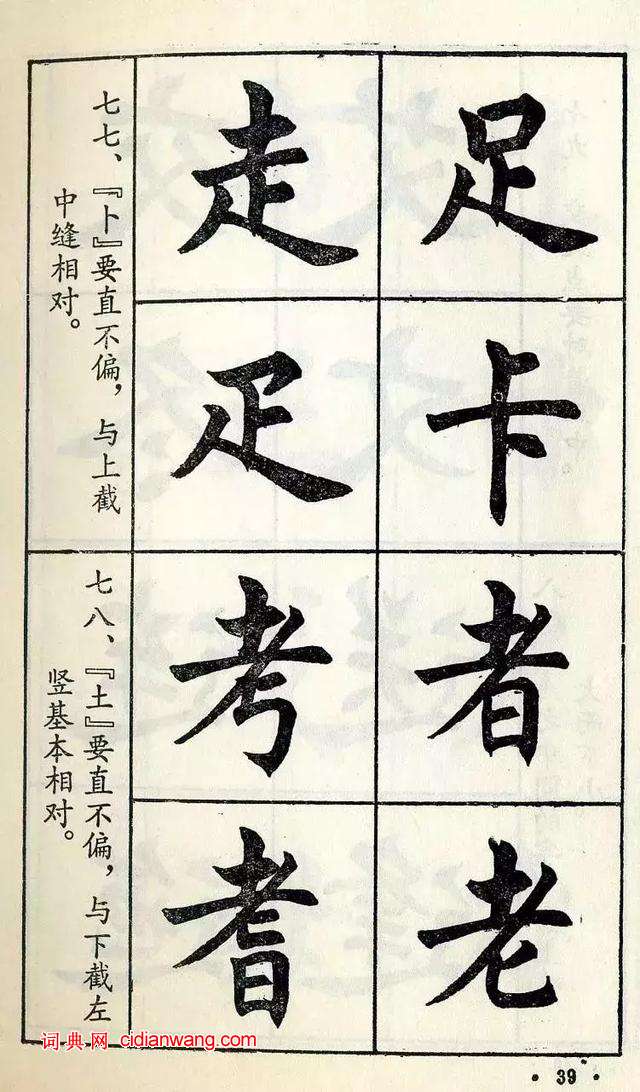 足
卡
走
疋
七七、『卜』要直不偏，与上截
中缝相对。
者
老
考
耆
七八、『土』要直不偏，与下截左
竖基本相对。
词典网 cidianwang.com
· 39 ·